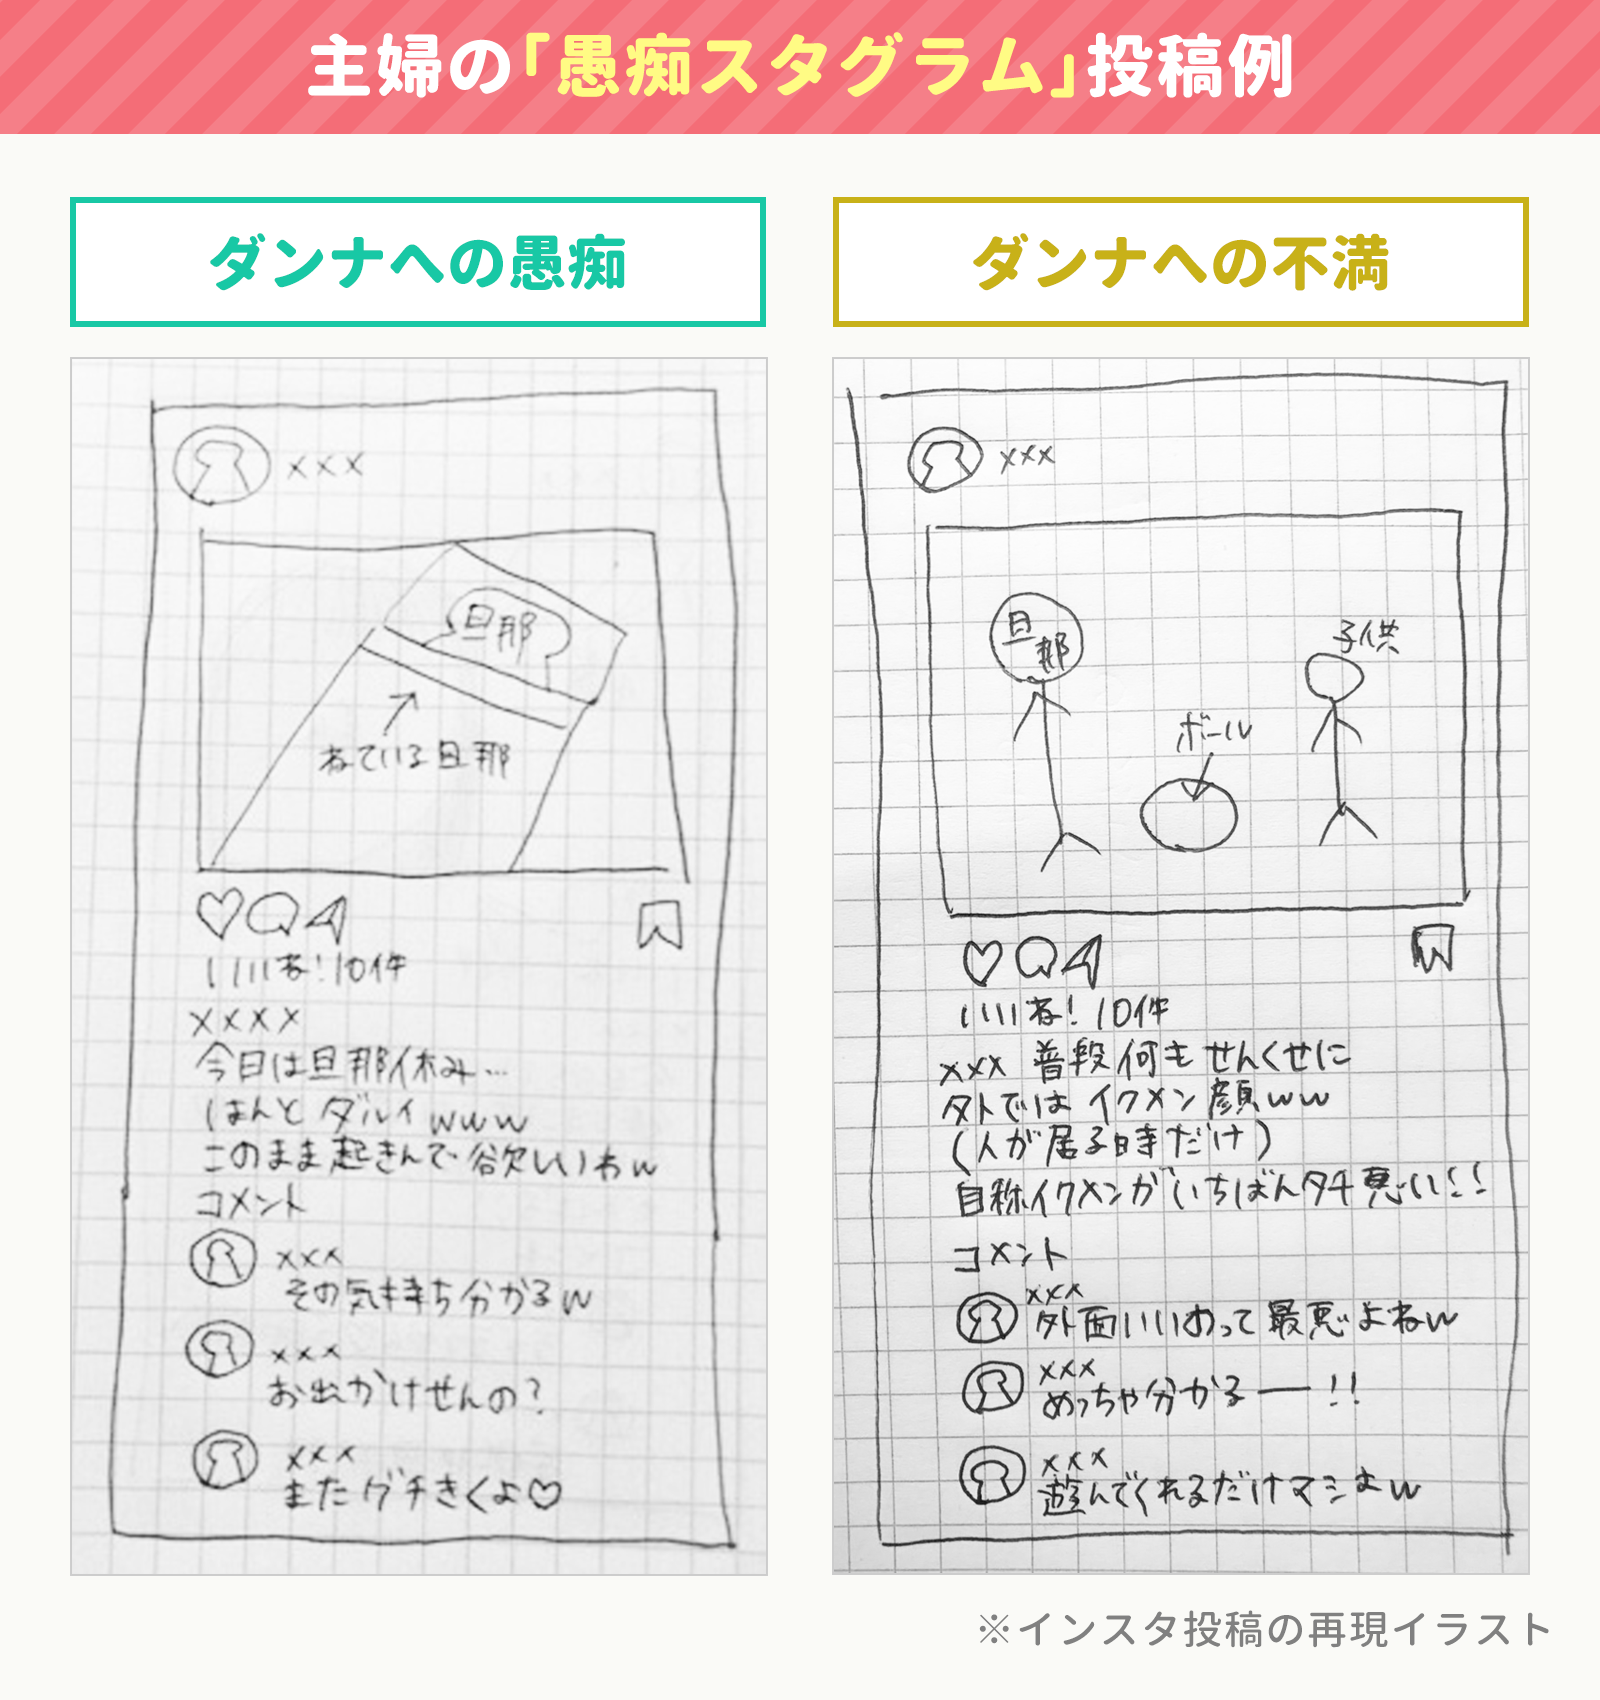 主婦の「愚痴スタグラム」投稿例
ダンナへの愚痴
×××
旦那
ねている旦那
いいね!10件
××××
今日は旦那休み…
ほんとダルイwww
このまま起きんで欲しいわw
コメント
×××
その気持ち分かるw
×××
お出かけせんの?
×××
またグチきくよ♡
ダンナへの不満
×××
旦那
子供
ボール
いいね!10件
××× 普段何もせんくせに
外ではイクメン顔ww
(人が居る時だけ)
自称イクメンがいちばんタチ悪い!!
コメント
×××
外面いいわって最悪よねw
×××
めっちゃ分かるー!!
×××
遊んでくれるだけマシよw
※インスタ投稿の再現イラスト